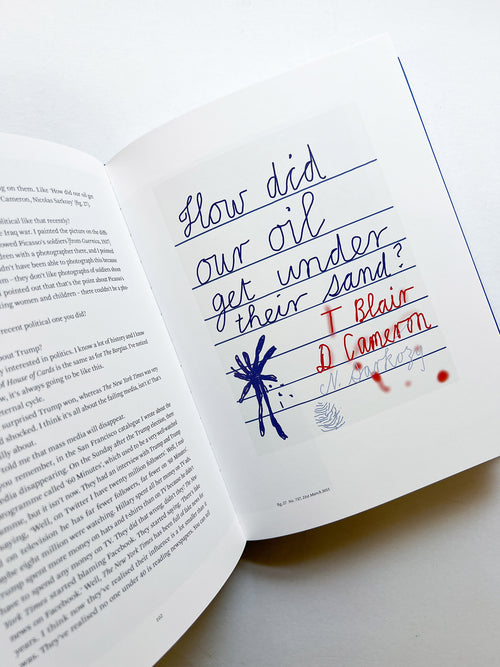 ng on them. Like 'How did our oil ge
Cameron, Nicolas Sarkozy' (fig. 27).
political like that recently?
e Iraq war. I painted the picture on the
owed Picasso's soldiers [from Guernica, 1937]
ldren with a photographer there, and I pointed
uldn't have been able to photograph this because
em – they don't like photographs of soldiers shoo
I pointed out that that's the point about Picasso's
ting women and children – there couldn't be a pho
recent political one you did?
bout Trump!
y interested in politics. I know a lot of history and I know
d House of Cards is the same as for The Borgias. I've noticed
w, it's always going to be like this.
ternal cycle.
surprised Trump won, whereas The New York Times was very
d shocked. I think it's all about the failing media, isn't it? That's
lly about.
told me that mass media will disappear.
you remember, in the San Francisco catalogue I wrote about the
edia disappearing. On the Sunday after the Trump election, there
programme called '60 Minutes', which used to be a very well-watched
amme, but it isn't now. They had an interview with Trump and Trump
saying, 'Well, on Twitter I have twenty million followers.' Well, I must
d on television he has far fewer followers, far fewer on '60 Minutes'.
aybe eight million were watching. Hillary spent all her money on TV ads.
Trump spent more money on hats and t-shirts than on TV because he didn't
have to spend any money on TV. They did that wrong, didn't they? The New
York Times started blaming Facebook. They started saying, 'There's fake
news on Facebook.' Well, The New York Times has been full of fake news for
years. I think now they've realised their influence is a lot smaller than it
was. They've realised no one under 40 is reading newspapers. You can tell
How did
our oil
get under
their sand?
T Blair
D Cameron
N. Sarkozy
fig. 27 No. 737, 21st March 2011